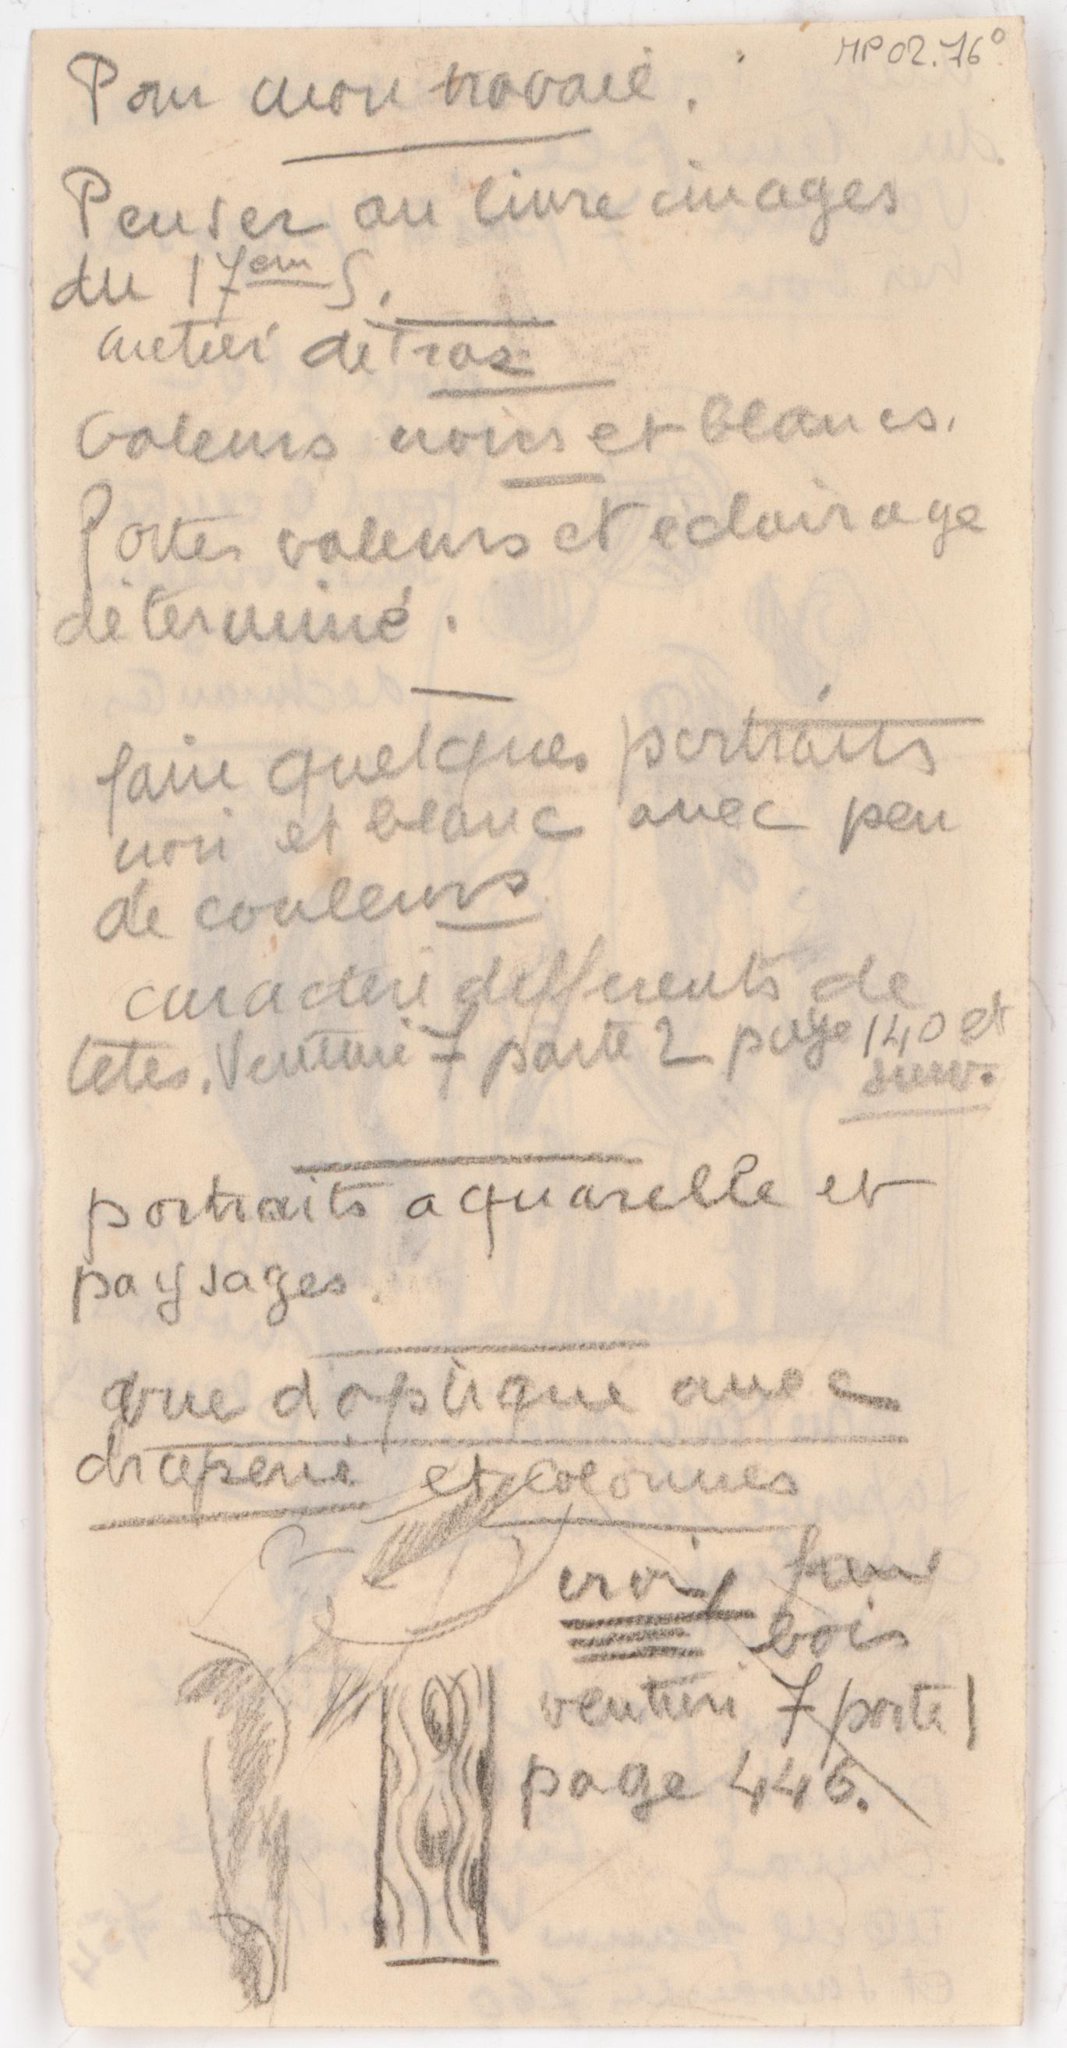 MP 02.76°
Pour mon travail.
Penser au livre images
du 17em S.
metier de
Valeurs noirs et blancs.
Portes valeurs et eclairage
déterminé.
faire quelques portraits
noir et blanc avec peu
de couleurs
caractere differents de
tetes. Venturi 7 parte 2 page 140 et
suiv.
portraits aquarelle et
paysages.
vue d'optique avec
draperie et colonnes
croix faux
bois
venturi 7 parte 1
page 446.